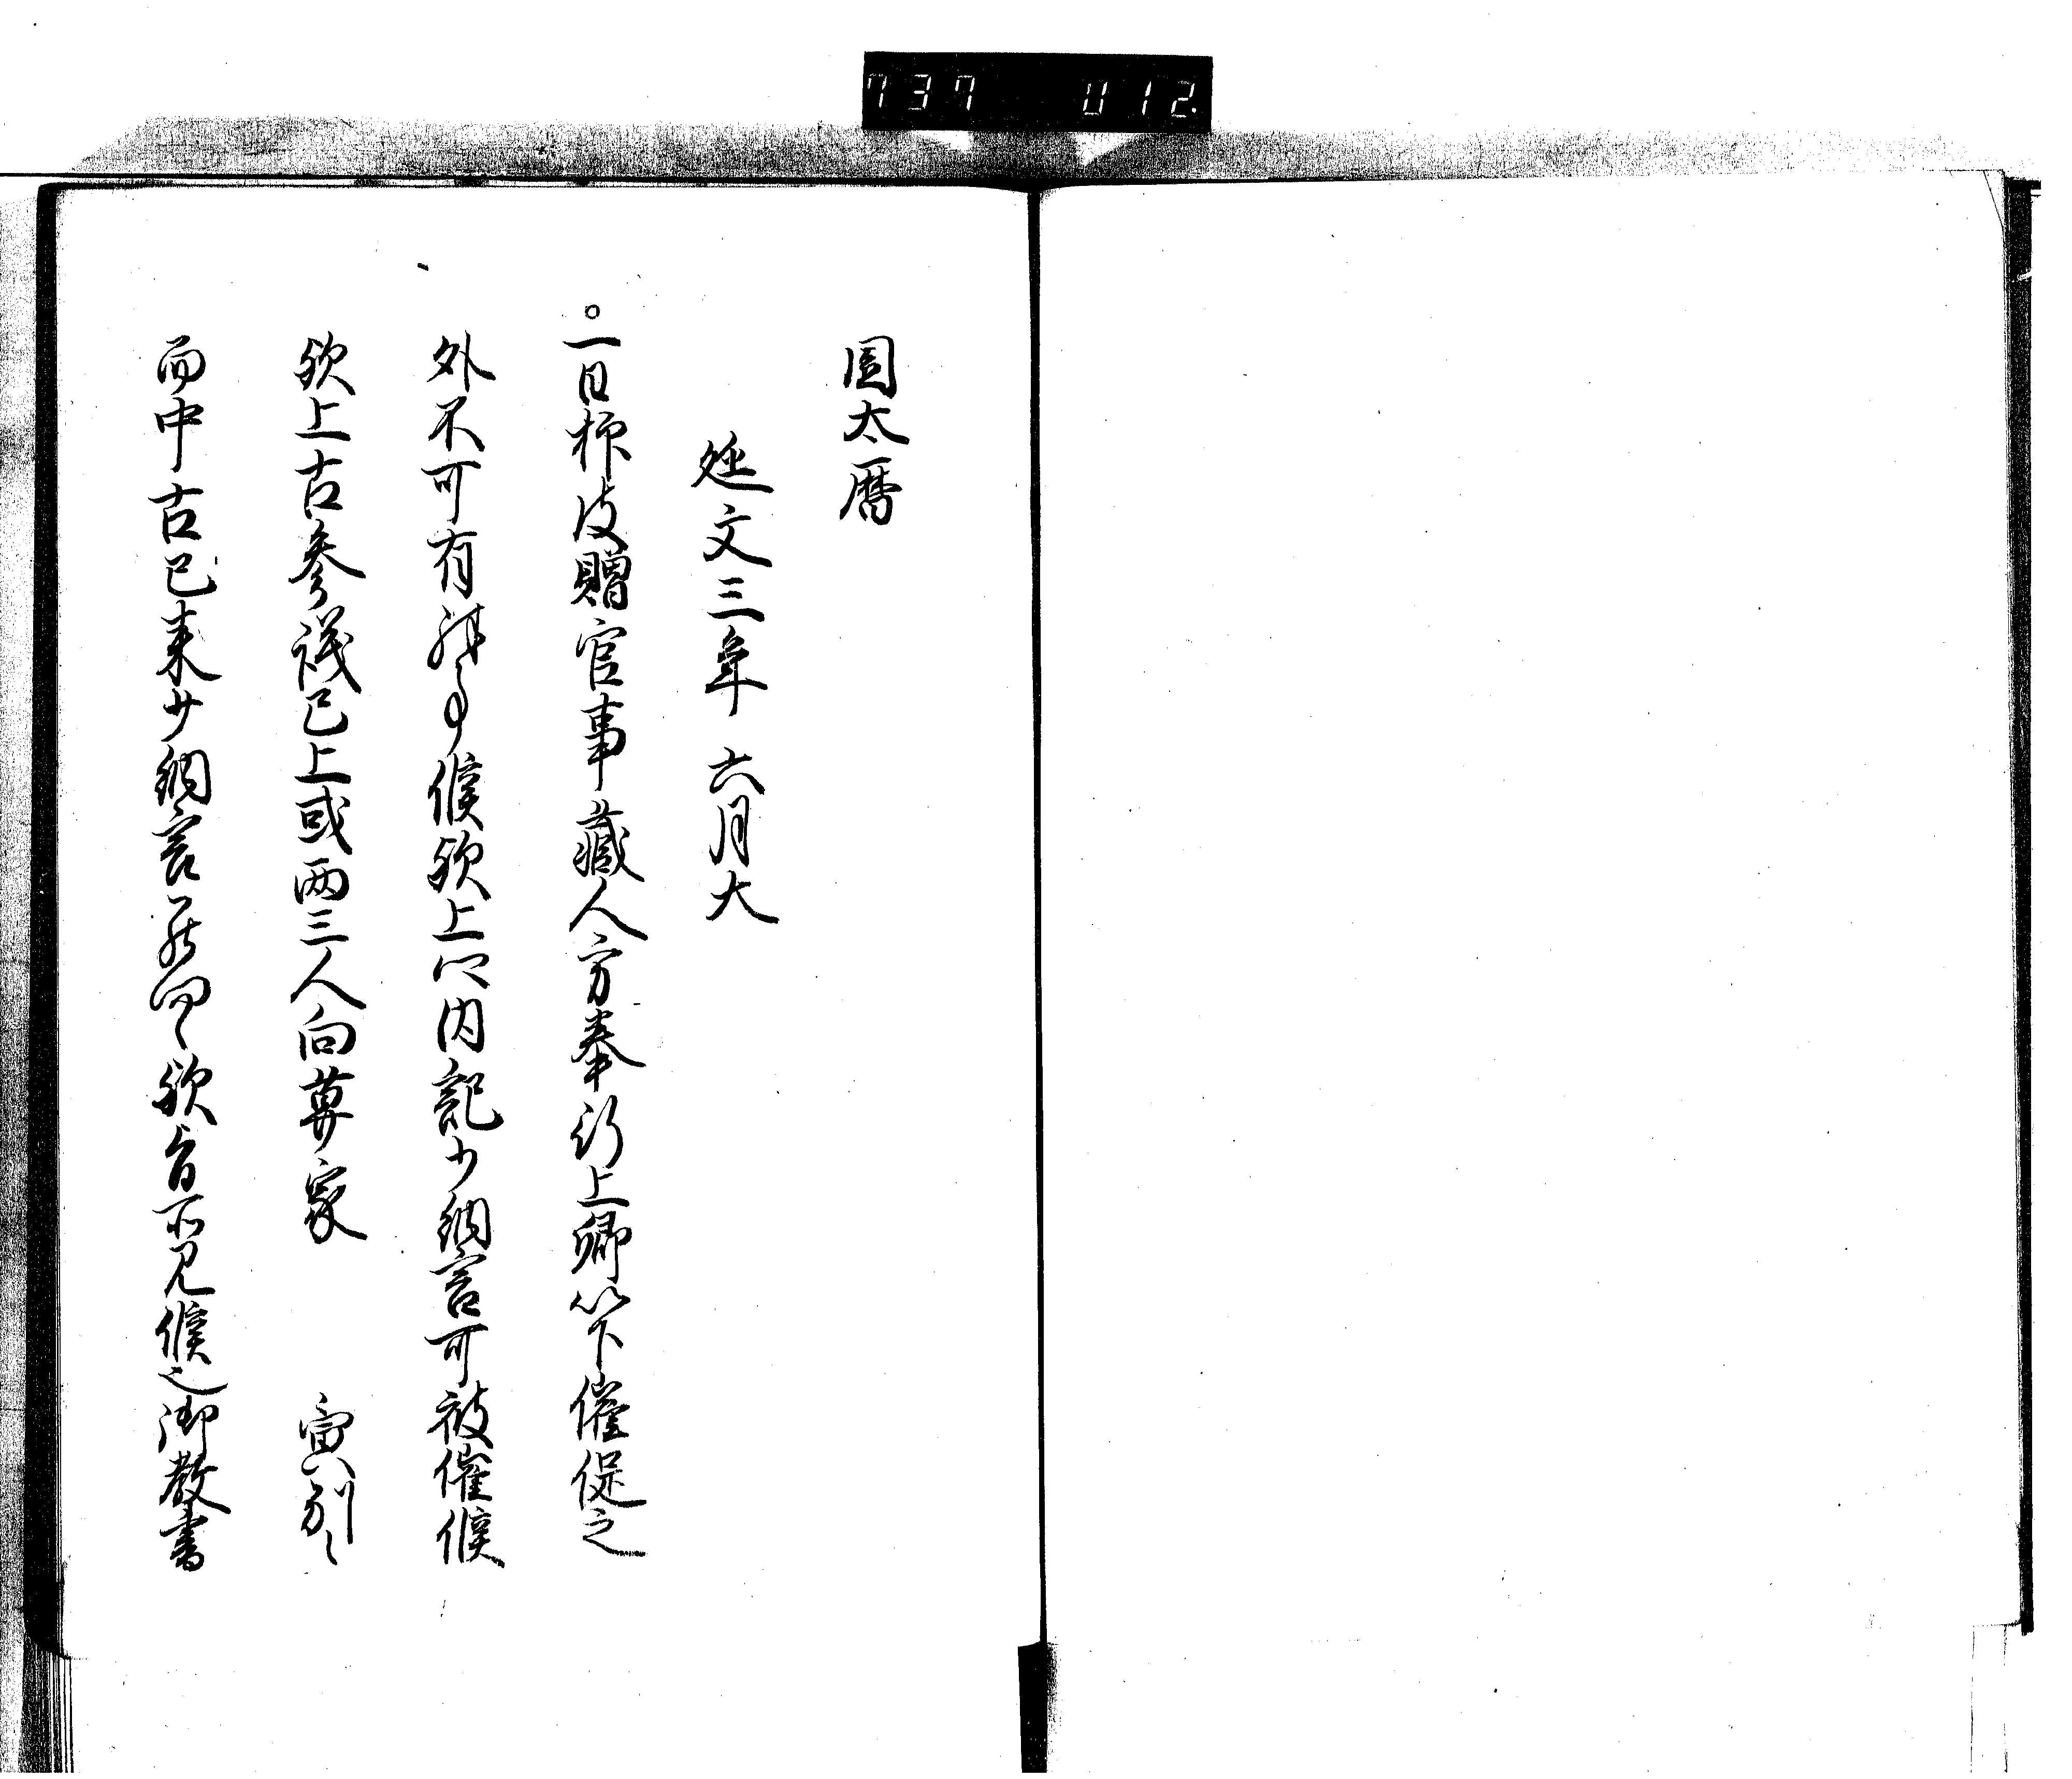 737 012
園太暦
延文三年 六月大
一日抑後贈官事蔵人方奉行上卿以下催促之
外不可有殊事候歟上卿内記少納言可被催候
歟上古参議已上或両三人向葬家
而中古已来少納言一人向之歟旨所見候之御教書